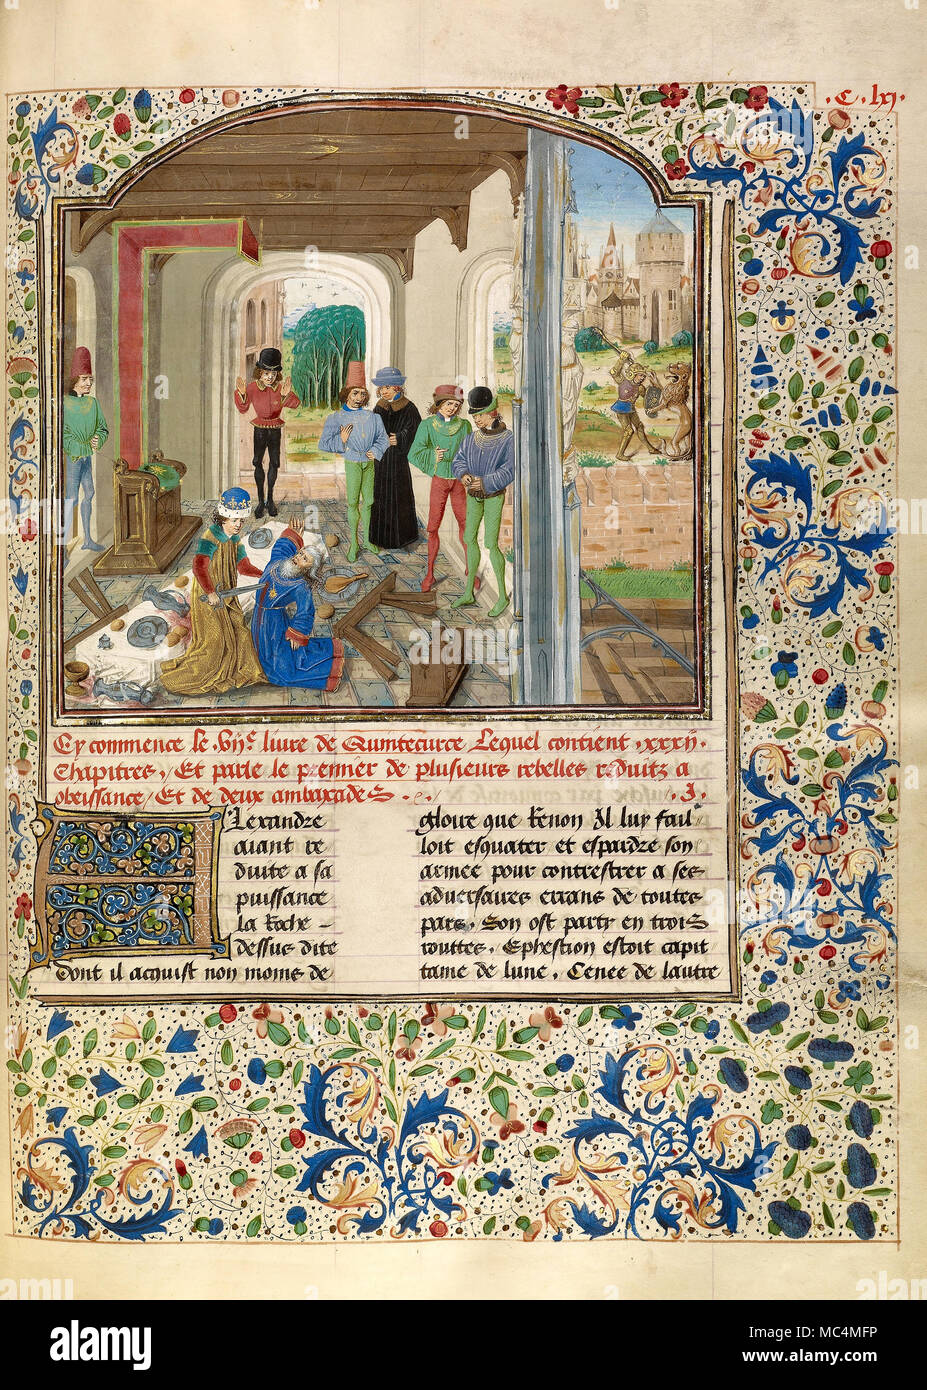 .C. lxj.
Cy commence le .vije. livre de Quintecurce Lequel contient .xxxij.
Chapitres, Et parle le premier de plusieurs rebelles reduitz a
obeissance, Et de deux ambaxades. .J.
Lexandre
aiant re
duite a sa
puissance
la Roche
dessus dite
dont il acquist non moins de
gloire que Renon Il luy fail
loit esquater et espardre son
armee pour contrester a ses
adversaires errans de toutes
pars. Son ost party en trois
routtes. Ephestion estoit capit
taine de lune. Cenee de lautre
alamy
Image ID: RMC4MFP
www.alamy.com